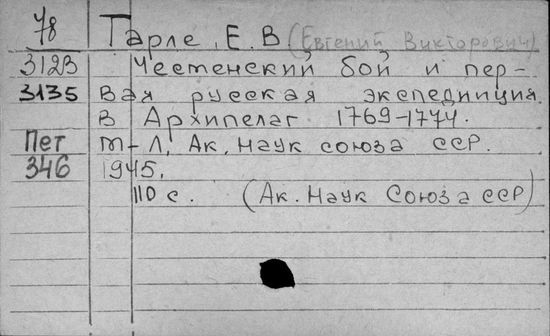 78 Тарле, Е. В (Евгений Викторович)
3123 Чесменский бой и пер-
3135 вая русская экспедиция
в Архипелаг 1769-1774.
Пет м-Л, Ак. Наук союза ССР.
346 1945.
110 с. (Ак. Наук Союза ССР)